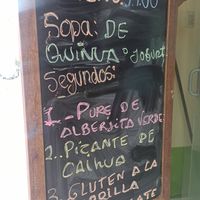 Sopa: DE
Quinua o Jogurt
Segundos:
1_ Pure DE
ALBERJITA VERDE
2.. PIZANTE DE
CAihua
3. GLUTEN A LA